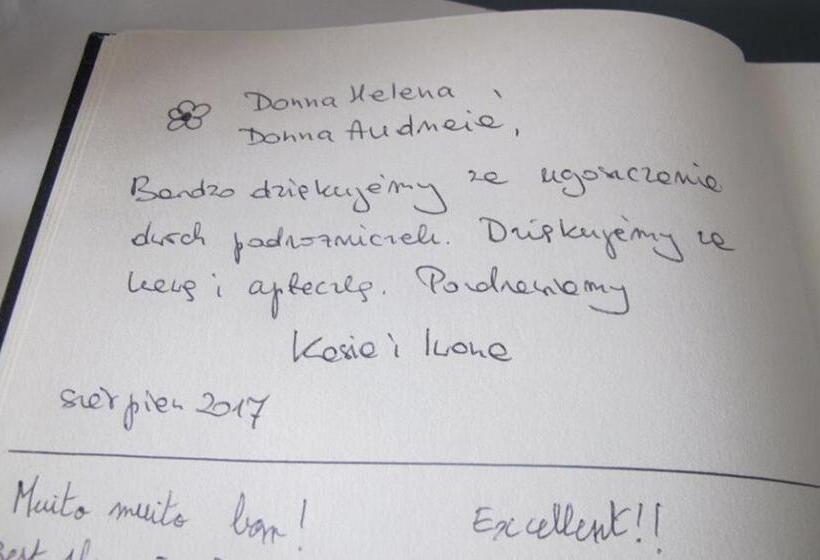 Donna Helena,
Donna Audneia,
Bardzo dziękujemy za ugoszczenie
dwóch podróżniczek. Dziękujemy za
kawę i apteczkę. Pozdrawiamy
Kasia i Iwona
sierpień 2017
Muito muito bom!
Excellent!!
Best